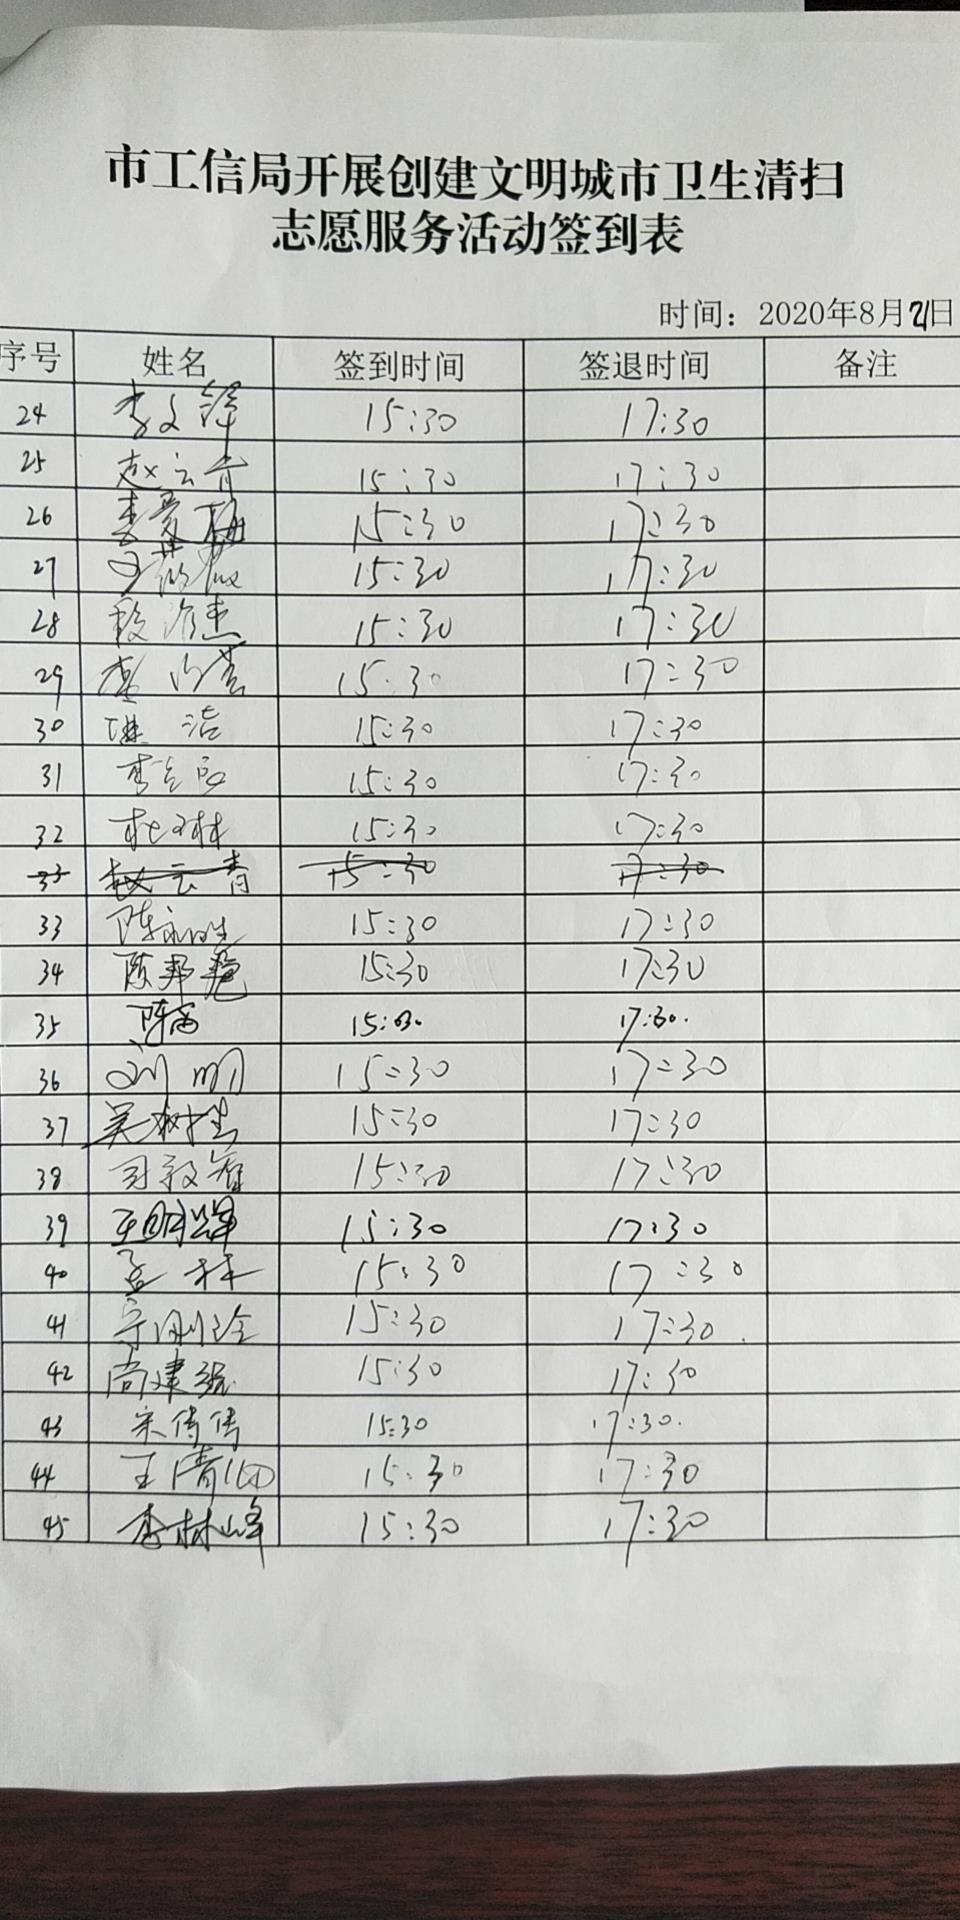 市工信局开展创建文明城市卫生清扫
志愿服务活动签到表
时间：2020年8月21日
序号 姓名 签到时间 签退时间 备注
24 李文锋 15:30 17:30
25 赵云青 15:30 17:30
26 15:30 17:30
27 15:30 17:30
28 15:30 17:30
29 15:30 17:30
30 15:30 17:30
31 15:30 17:30
32 15:30 17:30
33 赵云青 15:30 17:30
33 15:30 17:30
34 陈邦艳 15:30 17:30
35 15:30 17:30.
36 刘明 15:30 17:30
37 15:30 17:30
38 15:30 17:30
39 王明辉 15:30 17:30
40 孟林 15:30 17:30
41 15:30 17:30
42 尚建强 15:30 17:30
43 宋倩倩 15:30 17:30.
44 15:30 17:30
45 李林峰 15:30 17:30